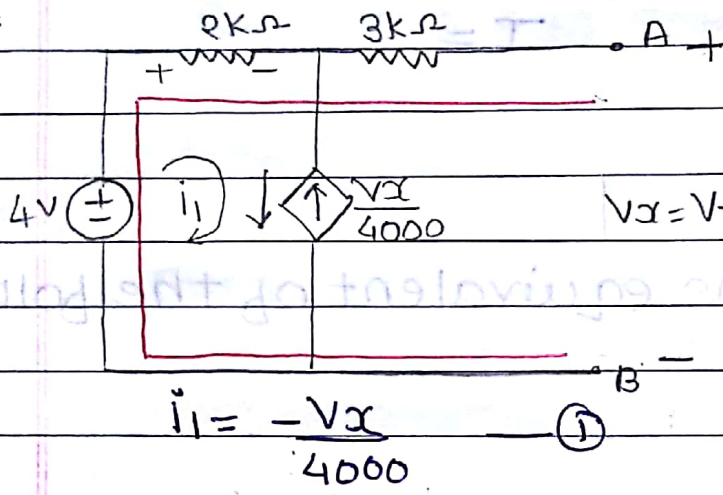 2KΩ 3KΩ A +
+ -
4V + - i₁ ↓ ↑ Vx/4000 Vx = V
B -
i₁ = -Vx/4000 — ①